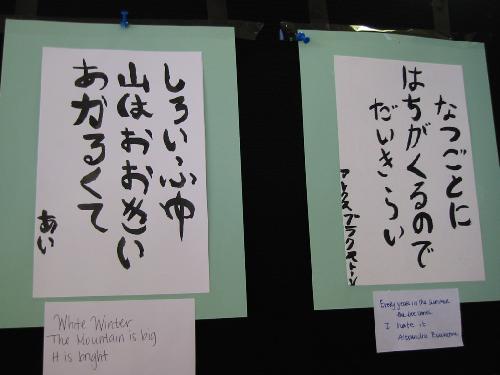 しろいふゆ
山はおおきい
あかるくて
あい
White Winter
The Mountain is big
It is bright
なつごとに
はちがくるので
だいきらい
Every year in the summer
the bee comes
I hate it